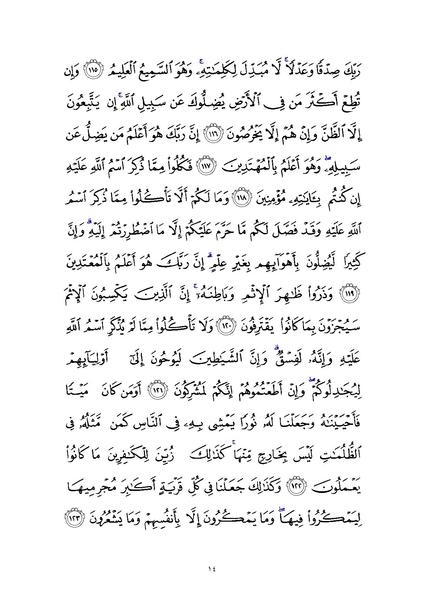 رَبِّكَ صِدْقًا وَعَدْلًا ۚ لَّا مُبَدِّلَ لِكَلِمَـٰتِهِۦ ۚ وَهُوَ ٱلسَّمِيعُ ٱلْعَلِيمُ ١١٥ وَإِن
تُطِعْ أَكْثَرَ مَن فِى ٱلْأَرْضِ يُضِلُّوكَ عَن سَبِيلِ ٱللَّهِ ۚ إِن يَتَّبِعُونَ
إِلَّا ٱلظَّنَّ وَإِنْ هُمْ إِلَّا يَخْرُصُونَ ١١٦ إِنَّ رَبَّكَ هُوَ أَعْلَمُ مَن يَضِلُّ عَن
سَبِيلِهِۦ ۖ وَهُوَ أَعْلَمُ بِٱلْمُهْتَدِينَ ١١٧ فَكُلُوا۟ مِمَّا ذُكِرَ ٱسْمُ ٱللَّهِ عَلَيْهِ
إِن كُنتُم بِـَٔايَـٰتِهِۦ مُؤْمِنِينَ ١١٨ وَمَا لَكُمْ أَلَّا تَأْكُلُوا۟ مِمَّا ذُكِرَ ٱسْمُ
ٱللَّهِ عَلَيْهِ وَقَدْ فَصَّلَ لَكُم مَّا حَرَّمَ عَلَيْكُمْ إِلَّا مَا ٱضْطُرِرْتُمْ إِلَيْهِ ۗ وَإِنَّ
كَثِيرًا لَّيُضِلُّونَ بِأَهْوَآئِهِم بِغَيْرِ عِلْمٍ ۗ إِنَّ رَبَّكَ هُوَ أَعْلَمُ بِٱلْمُعْتَدِينَ
١١٩ وَذَرُوا۟ ظَـٰهِرَ ٱلْإِثْمِ وَبَاطِنَهُۥٓ ۚ إِنَّ ٱلَّذِينَ يَكْسِبُونَ ٱلْإِثْمَ
سَيُجْزَوْنَ بِمَا كَانُوا۟ يَقْتَرِفُونَ ١٢٠ وَلَا تَأْكُلُوا۟ مِمَّا لَمْ يُذْكَرِ ٱسْمُ ٱللَّهِ
عَلَيْهِ وَإِنَّهُۥ لَفِسْقٌ ۗ وَإِنَّ ٱلشَّيَـٰطِينَ لَيُوحُونَ إِلَىٰٓ أَوْلِيَآئِهِمْ
لِيُجَـٰدِلُوكُمْ ۖ وَإِنْ أَطَعْتُمُوهُمْ إِنَّكُمْ لَمُشْرِكُونَ ١٢١ أَوَمَن كَانَ مَيْتًا
فَأَحْيَيْنَـٰهُ وَجَعَلْنَا لَهُۥ نُورًا يَمْشِى بِهِۦ فِى ٱلنَّاسِ كَمَن مَّثَلُهُۥ فِى
ٱلظُّلُمَـٰتِ لَيْسَ بِخَارِجٍ مِّنْهَا ۚ كَذَٰلِكَ زُيِّنَ لِلْكَـٰفِرِينَ مَا كَانُوا۟
يَعْمَلُونَ ١٢٢ وَكَذَٰلِكَ جَعَلْنَا فِى كُلِّ قَرْيَةٍ أَكَـٰبِرَ مُجْرِمِيهَا
لِيَمْكُرُوا۟ فِيهَا ۖ وَمَا يَمْكُرُونَ إِلَّا بِأَنفُسِهِمْ وَمَا يَشْعُرُونَ ١٢٣
١٤